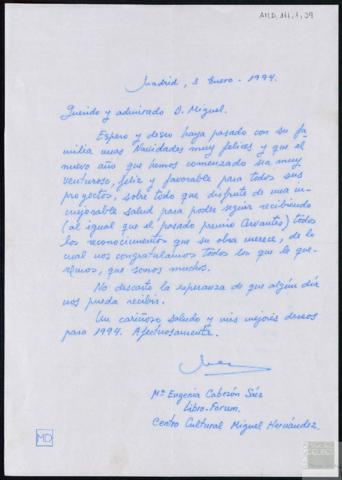 AMD, 111, 1, 39
Madrid, 3 Enero - 1994.
Querido y admirado D. Miguel.
Espero y deseo haya pasado con su fa-
milia unas Navidades muy felices y que el
nuevo año que hemos comenzado sea muy
venturoso, feliz y favorable para todos sus
proyectos, sobre todo que disfrute de una in-
mejorable salud para poder seguir recibiendo
(al igual que el pasado premio Cervantes) todos
los reconocimientos que su obra merece, de lo
cual nos congratulamos todos los que le que-
remos, que somos muchos.
No descarto la esperanza de que algún día
nos pueda recibir.
Un cariñoso saludo y mis mejores deseos
para 1994. Afectuosamente.
Mª Eugenia Cabezón Sáez
Libro-Forum.
Centro Cultural Miguel Hernández.
MD